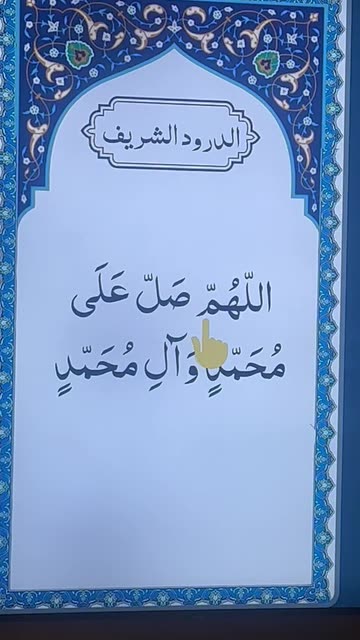 الدرود الشريف
اللّهُمّ صَلّ عَلَى
مُحَمّدٍ وَآلِ مُحَمّدٍ